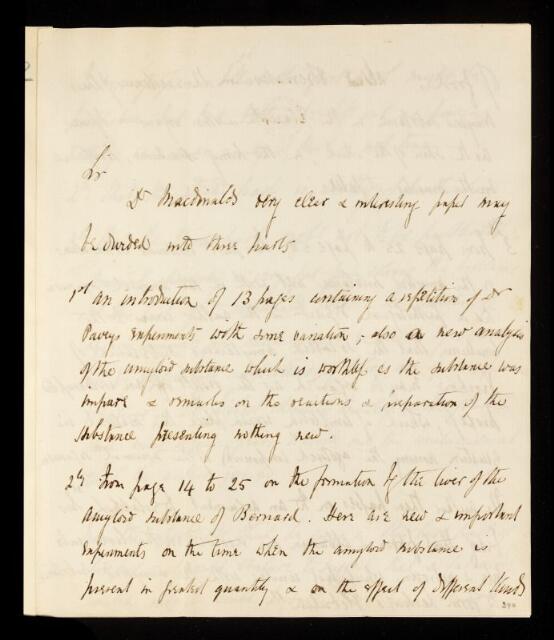 Sir
Dr Macdonald's very clear & interesting paper may
be divided into three parts
1st an introduction of 13 pages containing a repetition of Dr
Pavys experiments with some variation; also a new analysis
of the amyloid substance which is worthless as the substance was
impure & remarks on the reactions & preparation of the
substance presenting nothing new.
2ly From page 14 to 25 on the formation by the liver of the
amyloid substance of Bernard. Here are new & important
experiments on the time when the amyloid substance is
present in greatest quantity & on the effect of different kinds